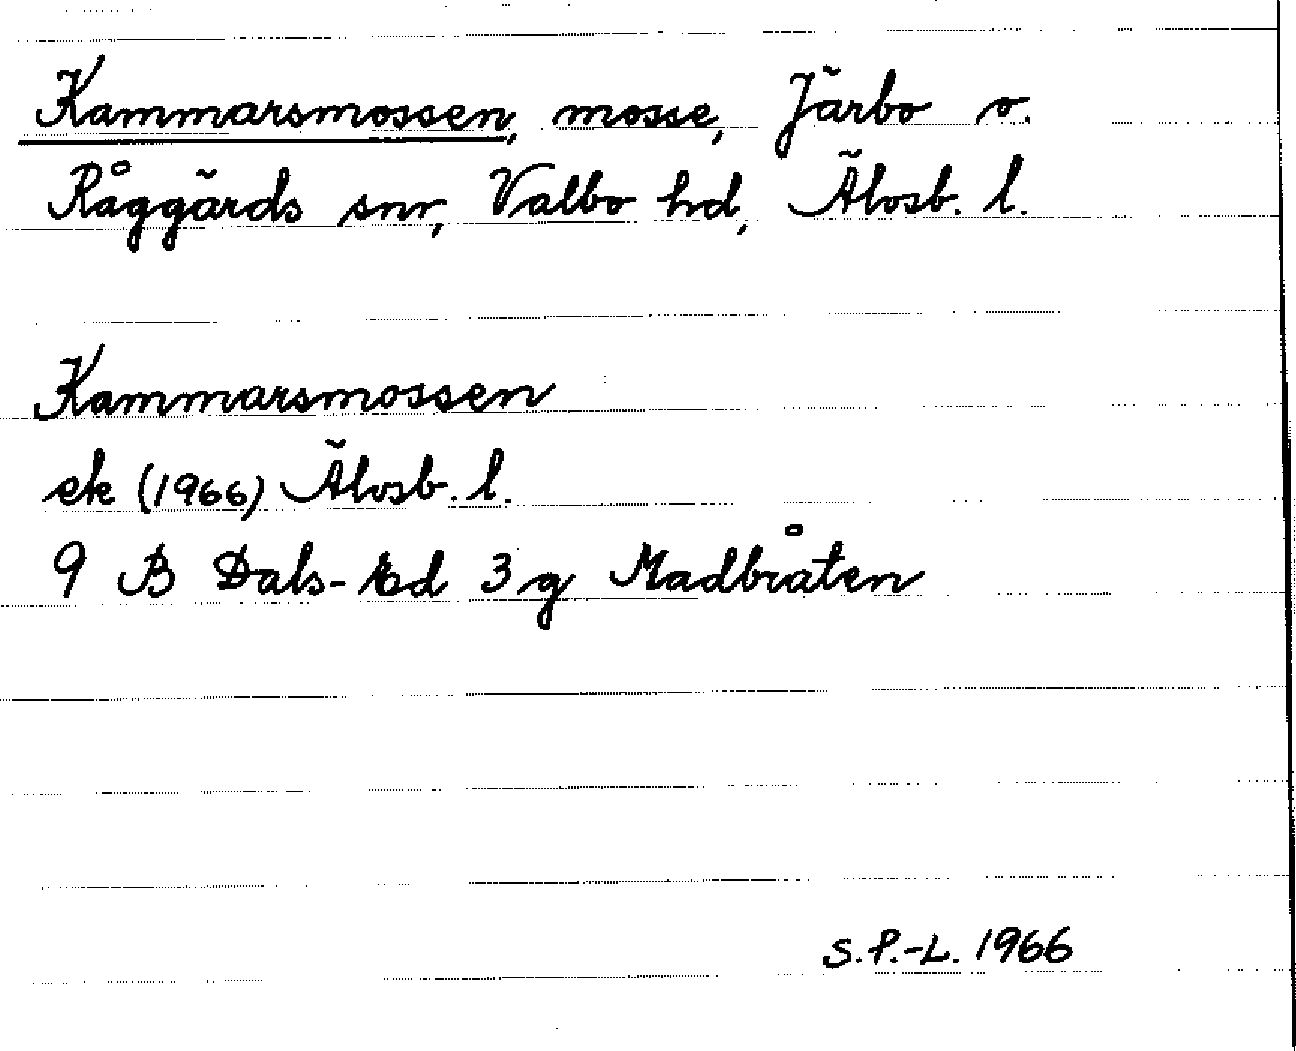 Kammarsmossen, mosse, Järbo o.
Råggärds snr, Valbo hd, Älvsb. l.
Kammarsmossen
ek (1966) Älvsb. l.
9 B Dals-Ed 3 g Madbråten
S.P.-L. 1966